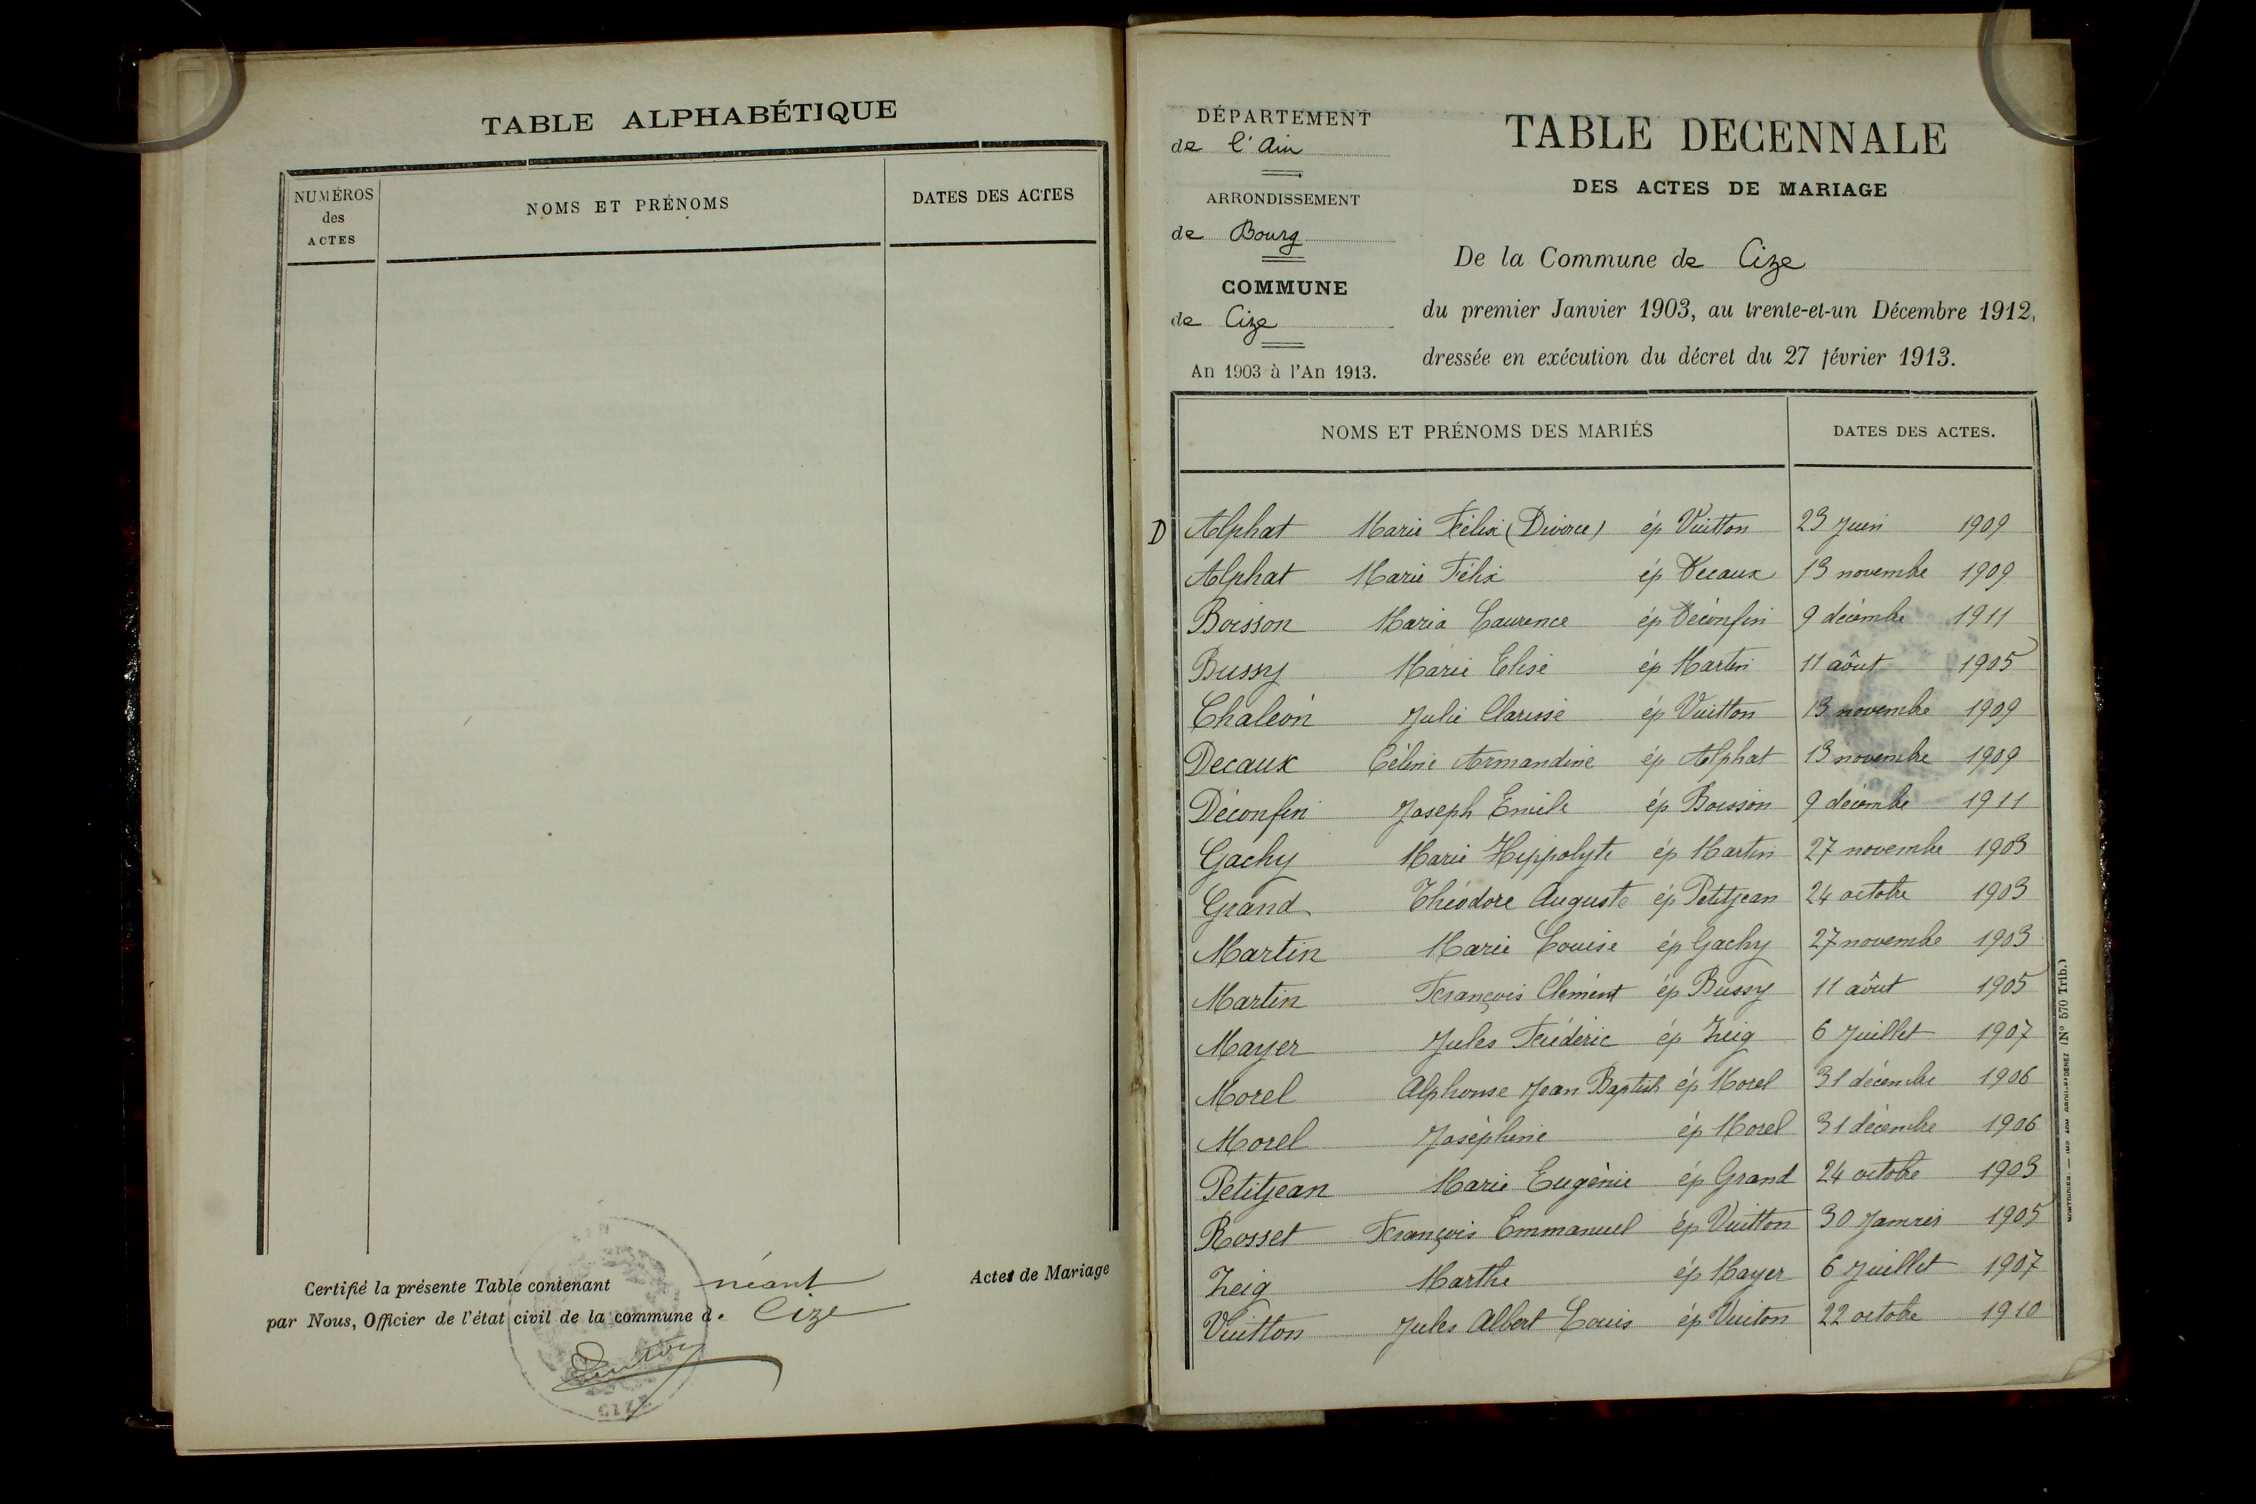 TABLE ALPHABÉTIQUE
NUMÉROS
des
ACTES
NOMS ET PRÉNOMS
DATES DES ACTES
Certifié la présente Table contenant néant Actes de Mariage
par Nous, Officier de l'état civil de la commune de Cize
DÉPARTEMENT
de l'Ain
ARRONDISSEMENT
de Bourg
COMMUNE
de Cize
An 1903 à l'An 1913.
TABLE DECENNALE
DES ACTES DE MARIAGE
De la Commune de Cize
du premier Janvier 1903, au trente-et-un Décembre 1912,
dressée en exécution du décret du 27 février 1913.
NOMS ET PRÉNOMS DES MARIÉS DATES DES ACTES.
D Alphat Marie Félix (Divorce) ép Vuitton 23 Juin 1909
Alphat Marie Félix ép Decaux 13 novembre 1909
Boisson Maria Laurence ép Déconfin 9 décembre 1911
Bussy Marie Elise ép Martin 11 aôut 1905
Chaléon Julie Clarisse ép Vuitton 13 novembre 1909
Decaux Céline Armandine ép Alphat 13 novembre 1909
Déconfin Joseph Emile ép Boisson 9 décembre 1911
Gachy Marie Hippolyte ép Martin 27 novembre 1903
Grand Théodore Auguste ép Petitjean 24 octobre 1903
Martin Marie Louise ép Gachy 27 novembre 1903
Martin François Clément ép Bussy 11 aôut 1905
Mayer Jules Frédéric ép Zeig 6 Juillet 1907
Morel Alphonse Jean Baptiste ép Morel 31 décembre 1906
Morel Joséphine ép Morel 31 décembre 1906
Petitjean Marie Eugénie ép Grand 24 octobre 1903
Rosset François Emmanuel ép Vuitton 30 Janvier 1905
Zeig Marthe ép Mayer 6 Juillet 1907
Vuitton Jules Albert Louis ép Vuiton 22 octobre 1910
(N° 570 Trib.)